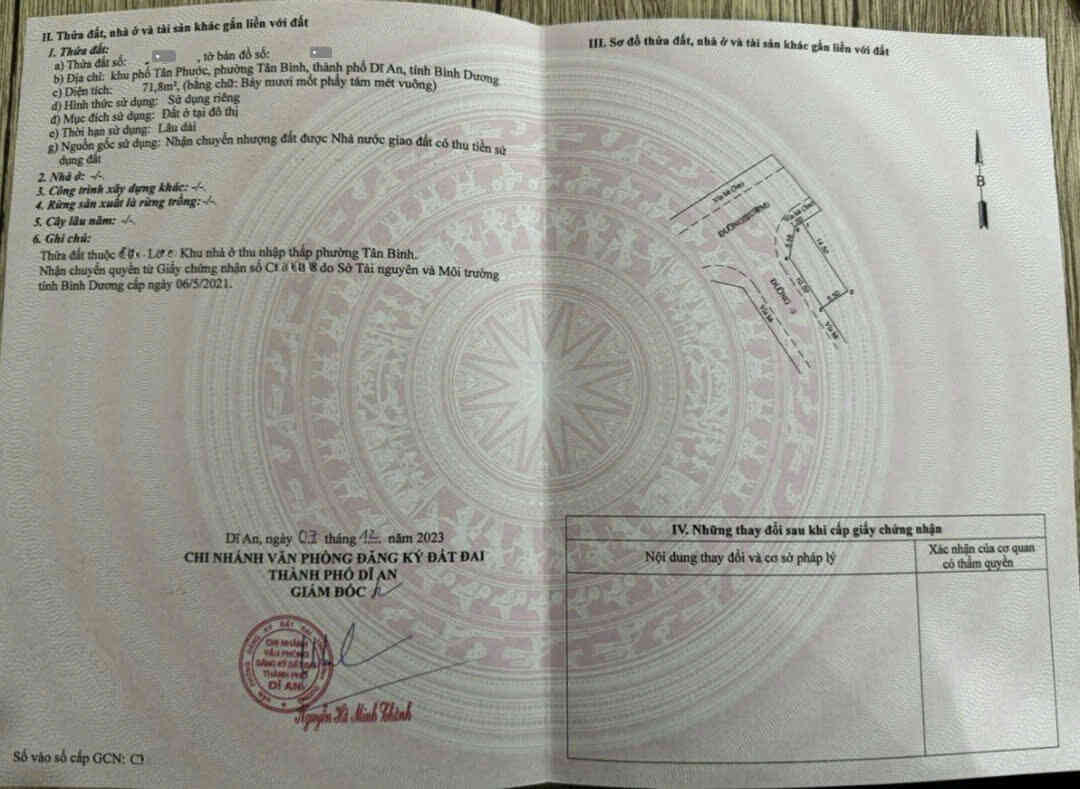 II. Thửa đất, nhà ở và tài sản khác gắn liền với đất
1. Thửa đất:
a) Thửa đất số: , tờ bản đồ số:
b) Địa chỉ: khu phố Tân Phước, phường Tân Bình, thành phố Dĩ An, tỉnh Bình Dương
c) Diện tích: 71,8m², (bằng chữ: Bảy mươi mốt phẩy tám mét vuông)
d) Hình thức sử dụng: Sử dụng riêng
đ) Mục đích sử dụng: Đất ở tại đô thị
e) Thời hạn sử dụng: Lâu dài
g) Nguồn gốc sử dụng: Nhận chuyển nhượng đất được Nhà nước giao đất có thu tiền sử
dụng đất
2. Nhà ở: -/-.
3. Công trình xây dựng khác: -/-.
4. Rừng sản xuất là rừng trồng: -/-.
5. Cây lâu năm: -/-.
6. Ghi chú:
Thửa đất thuộc Khu nhà ở thu nhập thấp phường Tân Bình.
Nhận chuyển quyền từ Giấy chứng nhận số do Sở Tài nguyên và Môi trường
tỉnh Bình Dương cấp ngày 06/5/2021.
Dĩ An, ngày 07 tháng 12 năm 2023
CHI NHÁNH VĂN PHÒNG ĐĂNG KÝ ĐẤT ĐAI
THÀNH PHỐ DĨ AN
GIÁM ĐỐC
CHI NHÁNH
VĂN PHÒNG
ĐĂNG KÝ ĐẤT ĐAI
THÀNH PHỐ
DĨ AN
Nguyễn Hà Minh Thành
Số vào sổ cấp GCN:
III. Sơ đồ thửa đất, nhà ở và tài sản khác gắn liền với đất
B
Vỉa hè
ĐƯỜNG
Vỉa hè
14.50
10.50
ĐƯỜNG
Vỉa hè
Vỉa hè
IV. Những thay đổi sau khi cấp giấy chứng nhận
Nội dung thay đổi và cơ sở pháp lý
Xác nhận của cơ quan
có thẩm quyền